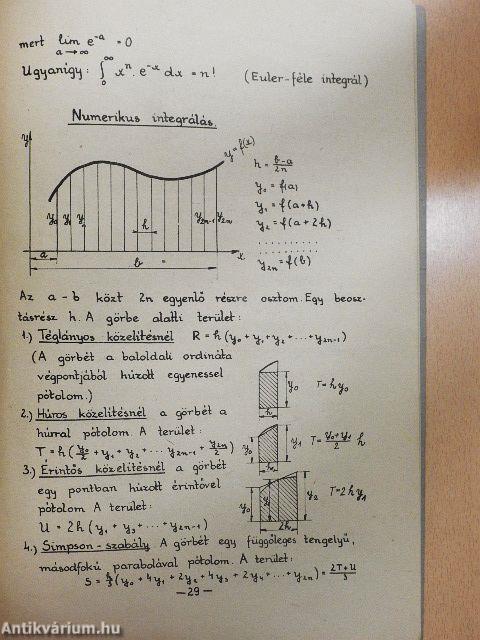 mert lim e^-a = 0
a→∞
Ugyanígy: ∫₀^∞ xⁿ. e^-x dx = n! (Euler-féle integrál)
Numerikus integrálás.
y
y=f(x)
h = b-a/2n
y₀ = f(a)
y₁ = f(a+h)
y₂ = f(a+2h)
..........
y₂ₙ = f(b)
y₀ y₁ y₂ h y₂ₙ₋₁ y₂ₙ
a x
b
Az a-b közt 2n egyenlő részre osztom. Egy beosz-
tásrész h. A görbe alatti terület:
1.) Téglányos közelítésnél R = h(y₀ + y₁ + y₂ + ... + y₂ₙ₋₁)
(A görbét a baloldali ordináta
végpontjából húzott egyenessel
pótolom.)
y₀ T = h y₀
h
2.) Húros közelítésnél a görbét a
húrral pótolom. A terület:
T = h(y₀/2 + y₁ + y₂ + ... y₂ₙ₋₁ + y₂ₙ/2)
y₀ y₁ T = y₀+y₁/2 h
h
3.) Érintős közelítésnél a görbét
egy pontban húzott érintővel
pótolom A terület:
U = 2h(y₁ + y₃ + ... + y₂ₙ₋₁)
y₀ y₁ y₂ T = 2h y₁
2h
4.) Simpson-szabály A görbét egy függőleges tengelyű,
másodfokú parabolával pótolom. A terület:
S = h/3(y₀ + 4y₁ + 2y₂ + 4y₃ + 2y₄ + ... + y₂ₙ) = 2T+U/3
—29—
Antikvárium.hu